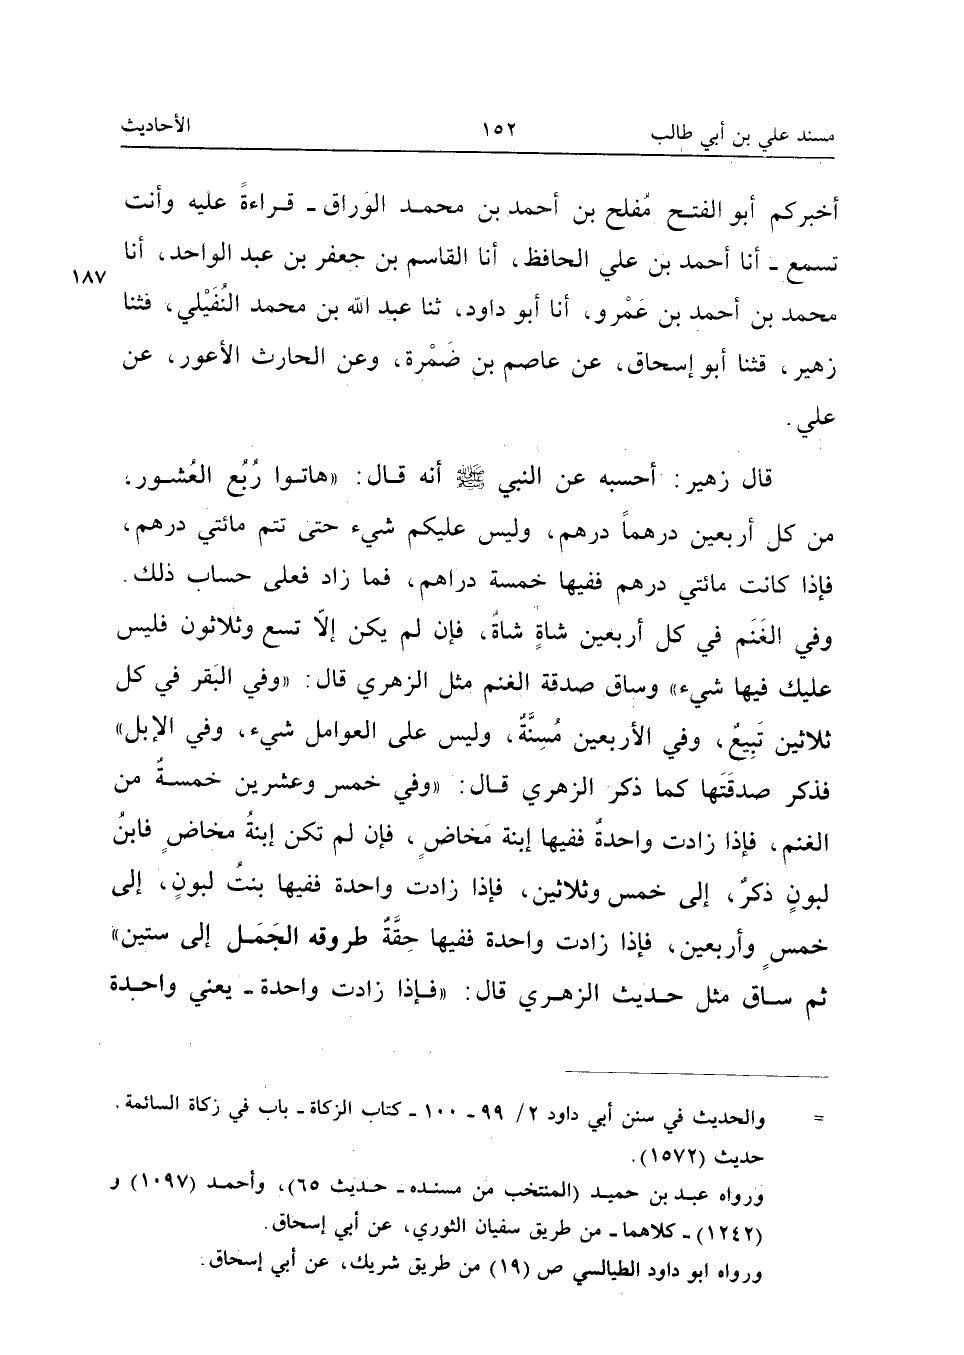 مسند علي بن أبي طالب ١٥٢ الأحاديث
أخبركم أبو الفتـح مُفلح بن أحمد بن محمـد الوَراق ـ قـراءةً عليه وأنت
تسمع ـ أنا أحمد بن علي الحافظ، أنا القاسم بن جعفر بن عبد الواحد، أنا
١٨٧
محمد بن أحمد بن عَمْرو، أنا أبو داود، ثنا عبد الله بن محمد النُفَيْلي، فثنا
زهير، قثنا أبو إسحاق، عن عاصم بن ضَمْرة، وعن الحارث الأعور، عن
علي.
قال زهير: أحسبه عن النبي ﷺ أنه قـال: «هاتـوا رُبُع العُشـور،
من كل أربعين درهماً درهم، وليس عليكم شيء حتى تتم مائتي درهم،
فإذا كانت مائتي درهم ففيها خمسة دراهم، فما زاد فعلى حساب ذلك.
وفي الغَنَم في كل أربعين شاةٍ شاةٌ، فإن لم يكن إلّا تسع وثلاثون فليس
عليك فيها شيء» وساق صدقة الغنم مثل الزهري قال: «وفي البَقر في كل
ثلاثين تَبِيعٌ، وفي الأربعين مُسِنَّةٌ، وليس على العوامل شيء، وفي الإبل»
فذكر صدقَتَها كما ذكر الزهري قـال: «وفي خمس وعشرين خمسـةٌ من
الغنم، فإذا زادت واحدةٌ ففيها إبنة مَخاضٍ، فإن لم تكن إبنةُ مخاضٍ فابنُ
لبونٍ ذكرٌ، إلى خمس وثلاثين، فإذا زادت واحدة ففيها بنتُ لبونٍ، إلى
خمسٍ وأربعين، فإذا زادت واحدة ففيها حقَّةٌ طروقه الجَمَل إلى ستين»
ثم سـاق مثل حديث الزهـري قال: «فـإذا زادت واحدة ـ يعني واحـدة
= والحديث في سنن أبي داود ٢/ ٩٩ ـ ١٠٠ ـ كتاب الزكاة ـ باب في زكاة السائمة.
حديث (١٥٧٢).
ورواه عبـد بن حميـد (المنتخب من مسنده ـ حـديث ٦٥)، وأحمـد (١٠٩٧) و
(١٢٤٢) ـ كلاهمـا ـ من طريق سفيان الثوري، عن أبي إسحاق.
ورواه ابو داود الطيالسي ص (١٩) من طريق شريك، عن أبي إسحاق.